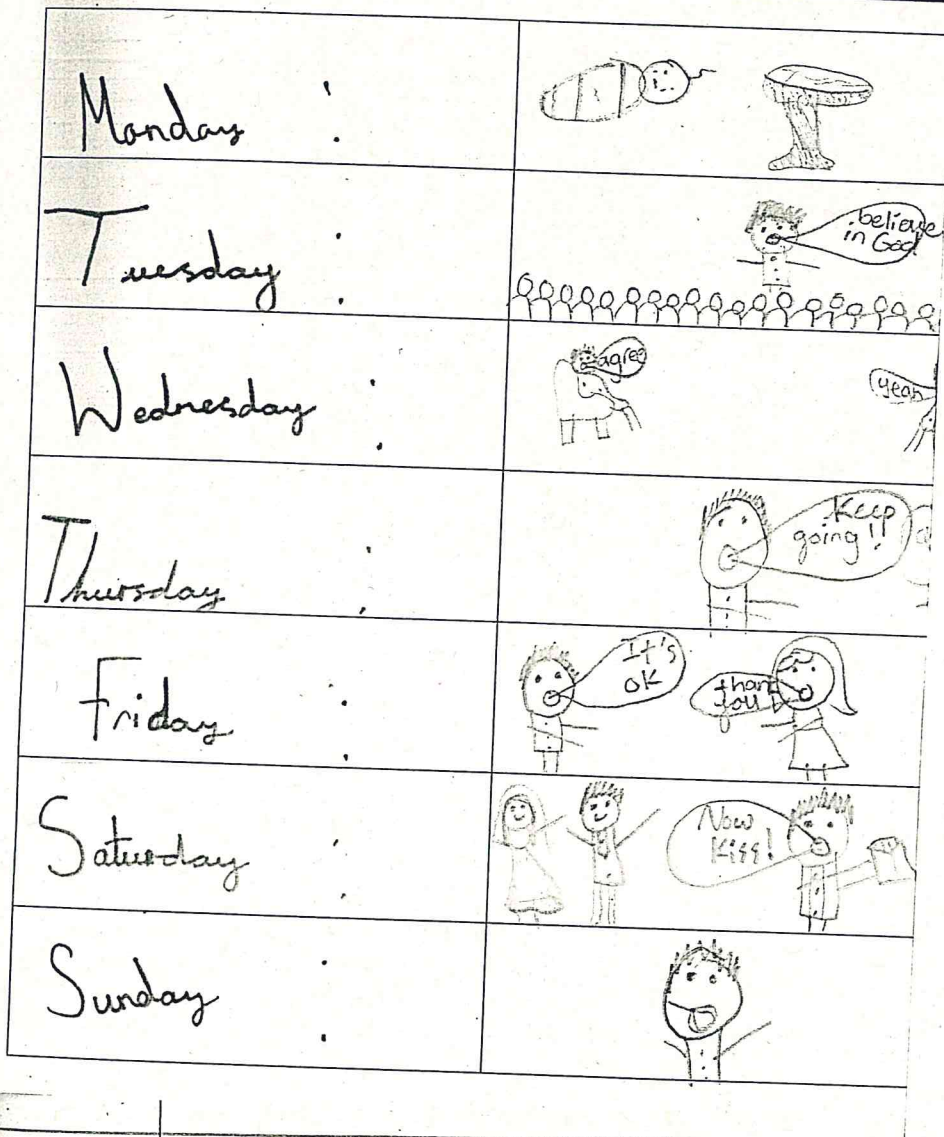 Monday :
Tuesday :
believe
in God!
Wednesday :
agree
yeah
Thursday :
Keep
going!!
Friday :
It's
OK
thank
you
Saturday :
Now
Kiss!
Sunday :